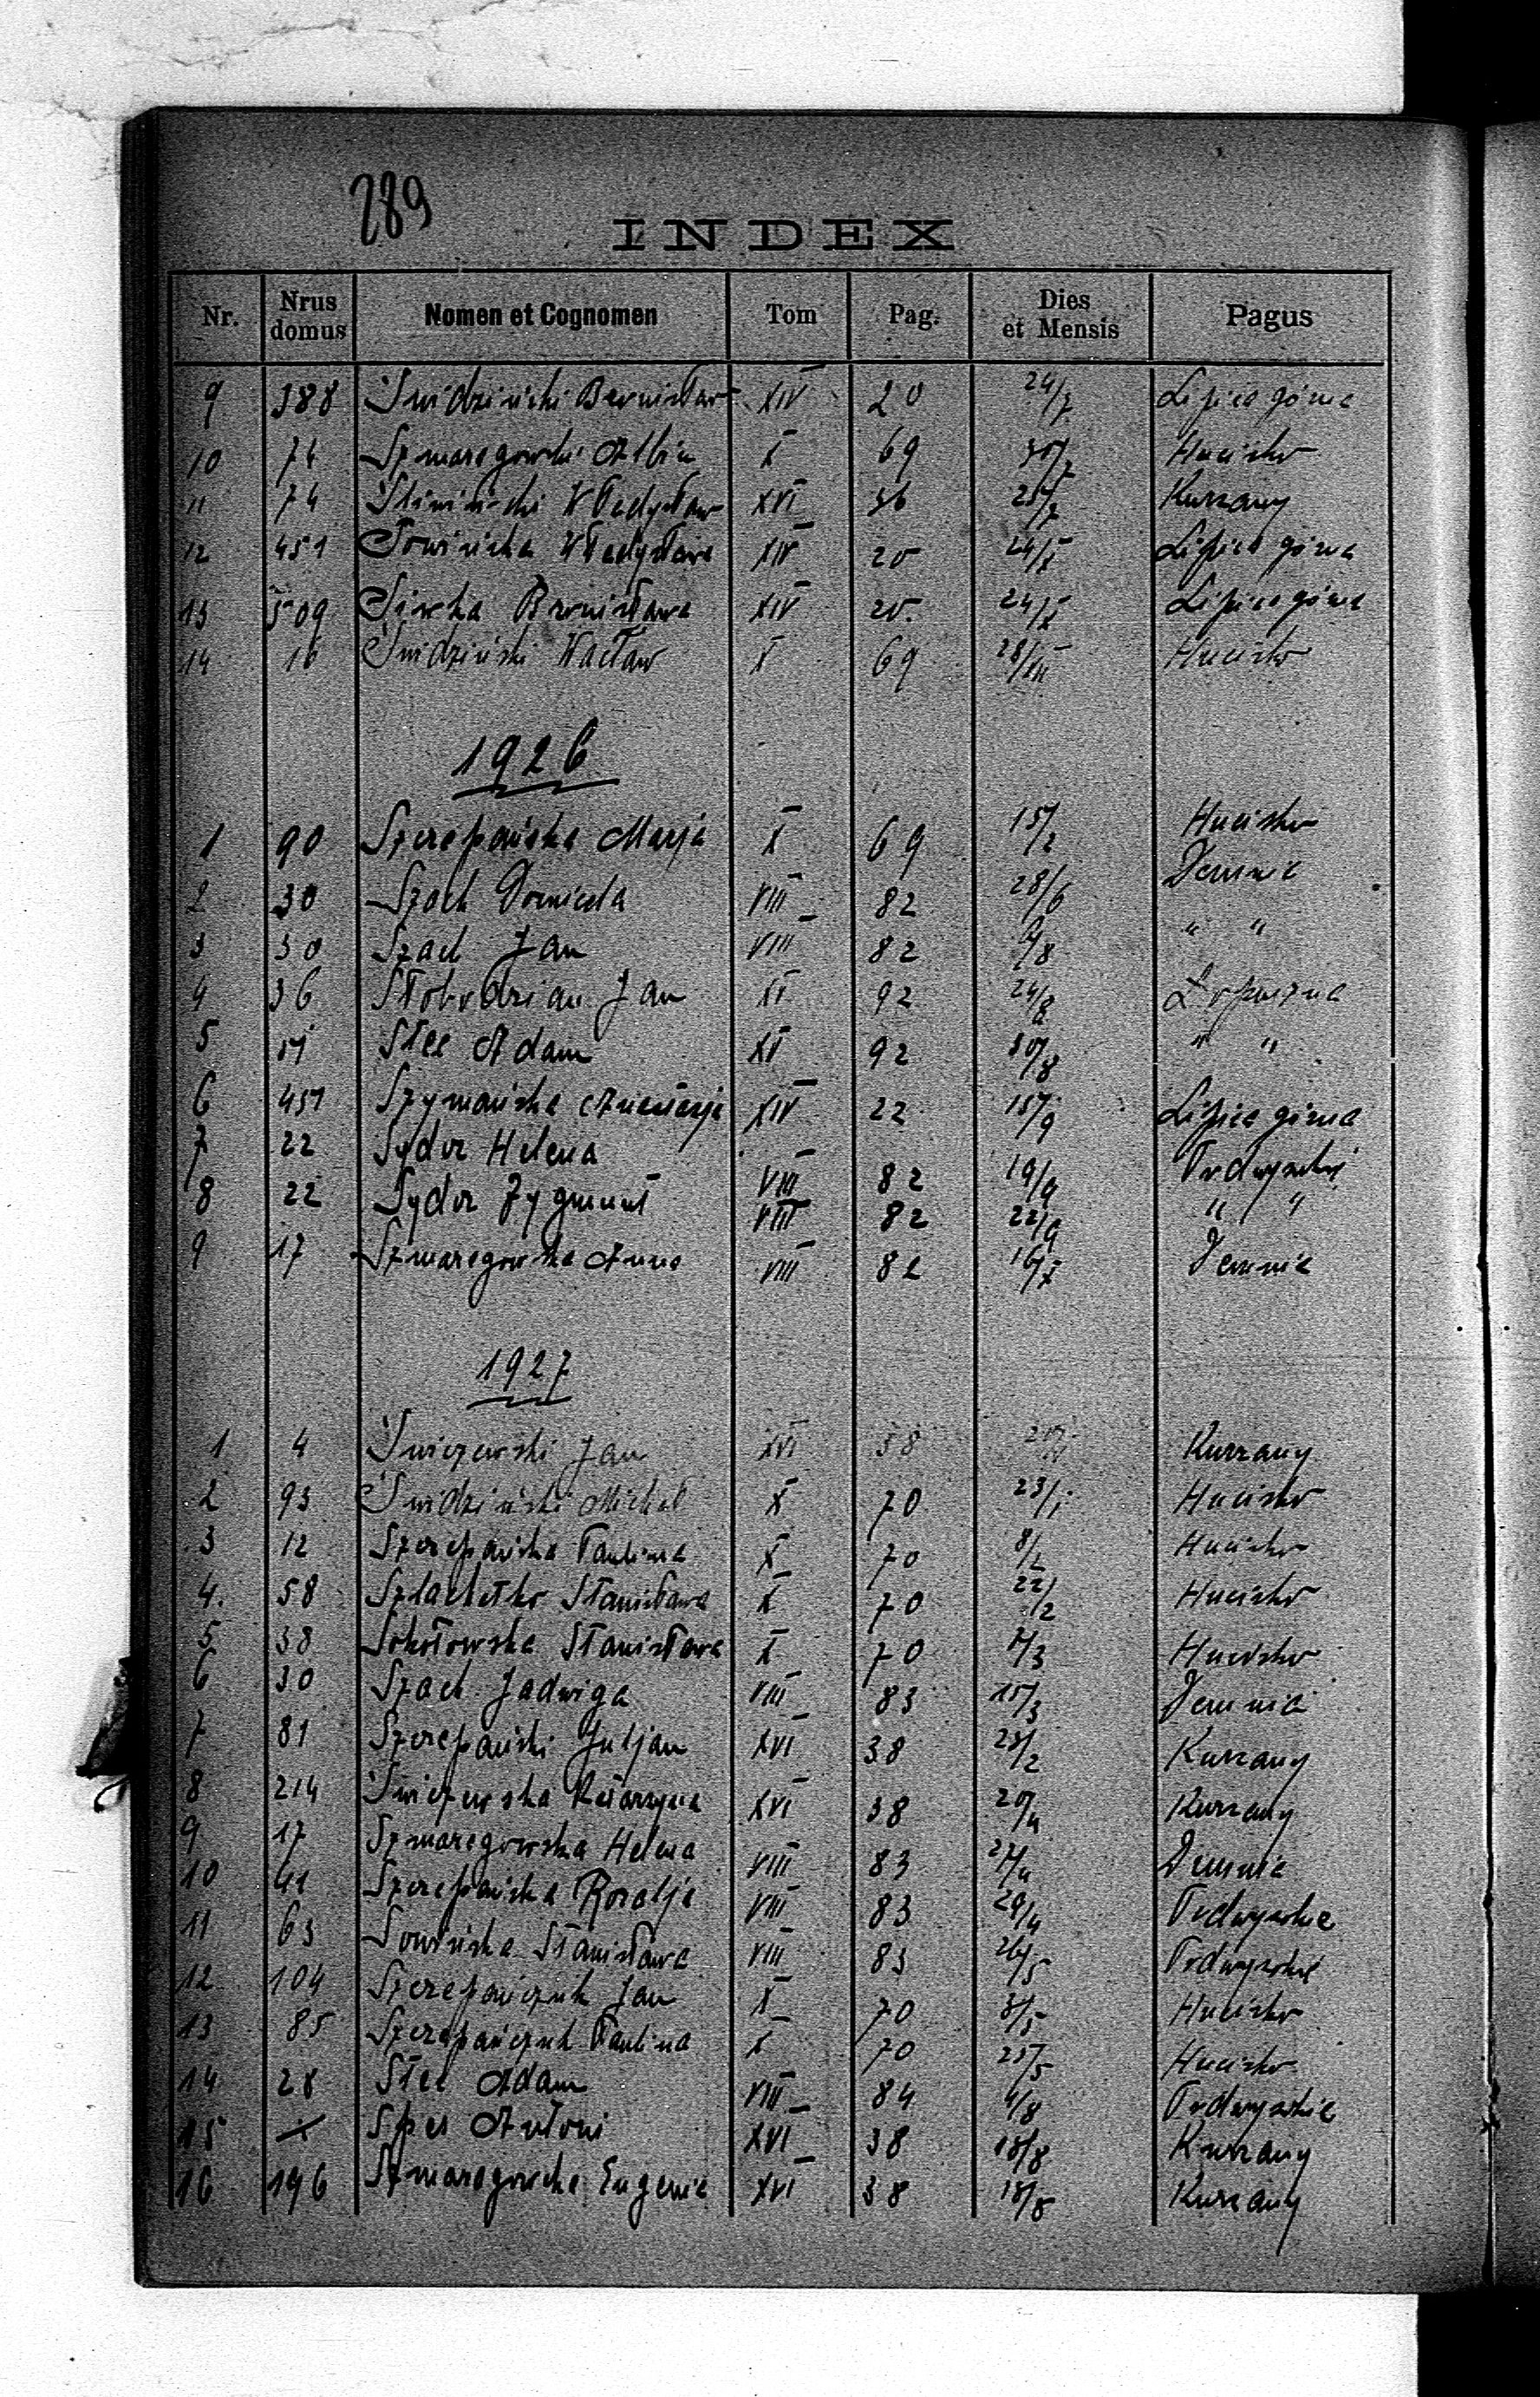 289
INDEX
Nr. Nrus domus Nomen et Cognomen Tom Pag. Dies et Mensis Pagus
9 388 Świdziński Bronisław XIV 20 24/7 Lipica górna
10 74 Szmaregowski Albin X 69 Hucisko
11 74 Śliwiński Władysław XVI 36 Kurzany
12 451 Sowińska Władysława XIV 20 24/X Lipica górna
13 509 Siwka Bronisława XIV 20. 24/X Lipica górna
14 16 Świdziński Wacław X 69 28/XII Hucisko
1926
1 90 Szczepańska Marja X 69 15/2 Hucisko
2 30 Szach Domicela VIII 82 28/6 Demnia
3 30 Szach Jan VIII 82 9/8 " "
4 36 Słobodzian Jan XI 92 24/8 Łopuszna
5 Stec Adam XI 92 30/8 " "
6 451 Szymańska Anastazja XIV 22 15/9 Lipica górna
7 22 Sydor Helena VIII 82 19/9 Podwysokie
8 22 Sydor Zygmunt VIII 82 22/9 " "
9 17 Szmaregowska Anna VIII 82 16/X Demnia
1927
1 4 Świczewski Jan XVI 38 Kurzany
2 93 Świdziński Michał X 70 23/1 Hucisko
3 12 Szczepańska Paulina X 70 8/2 Hucisko
4. 58 Szlachetko Stanisława X 70 22/2 Hucisko
5. 38 Sokołowska Stanisława X 70 Hucisko
6 30 Szach Jadwiga VIII 83 15/3 Demnia
7 81 Szczepański Juljan XVI 38 23/2 Kurzany
8 214 Świczewska Katarzyna XVI 38 20/4 Kurzany
9 17 Szmaregowska Helena VIII 83 27/4 Demnia
10 41 Szczepańska Rozalja VIII 83 29/4 Podwysokie
11 63 Sowińska Stanisława VIII 83 26/5 Podwysokie
12 104 Szczepańczuk Jan X 70 8/5 Hucisko
13 85 Szczepańczuk Paulina X 70 25/5 Hucisko
14 28 Stec Adam VIII 84 4/8 Podwysokie
15 Spes Antoni XVI 38 18/8 Kurzany
16 196 Szmaregowska Eugenia XVI 38 18/8 Kurzany